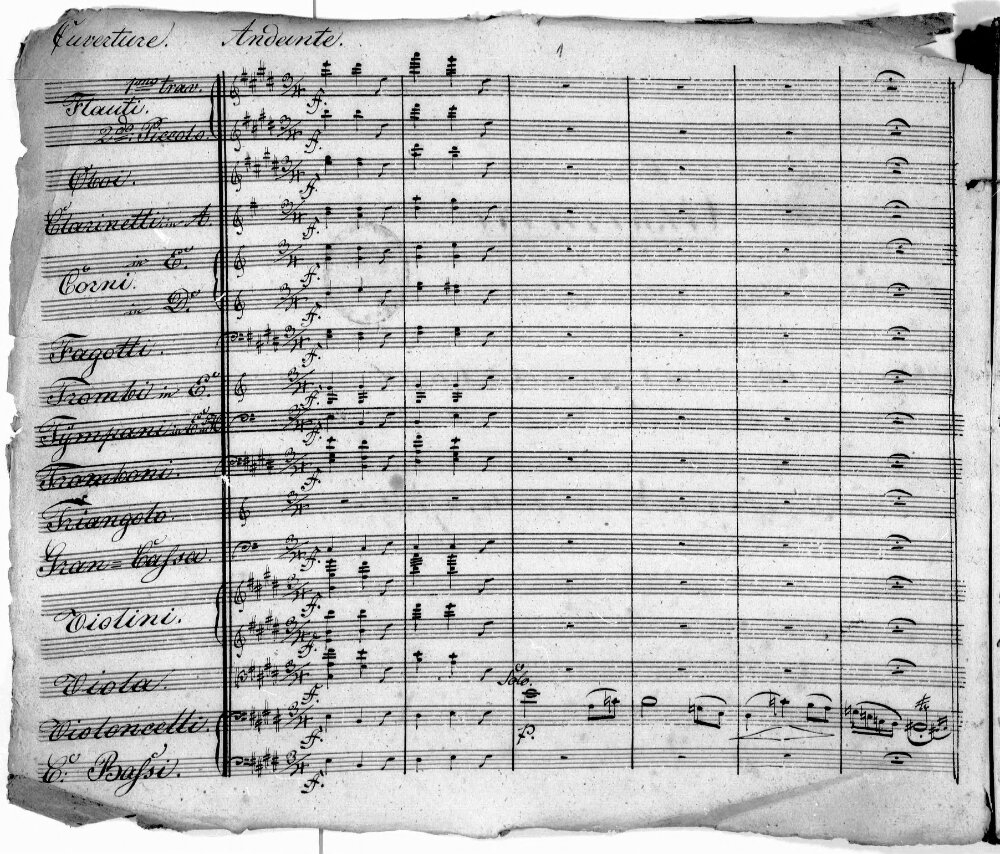 Ouverture. Andante. 1
1mo trav.
Flauti.
2do Piccolo
Oboi.
Clarinetti in A.
in E.
Corni.
in D.
Fagotti.
Trombi in E.
Tÿmpani in E
Tromboni.
Triangolo.
Gran=Cassa.
Violini.
Viola.
Solo.
Violoncelli.
C. Bassi.